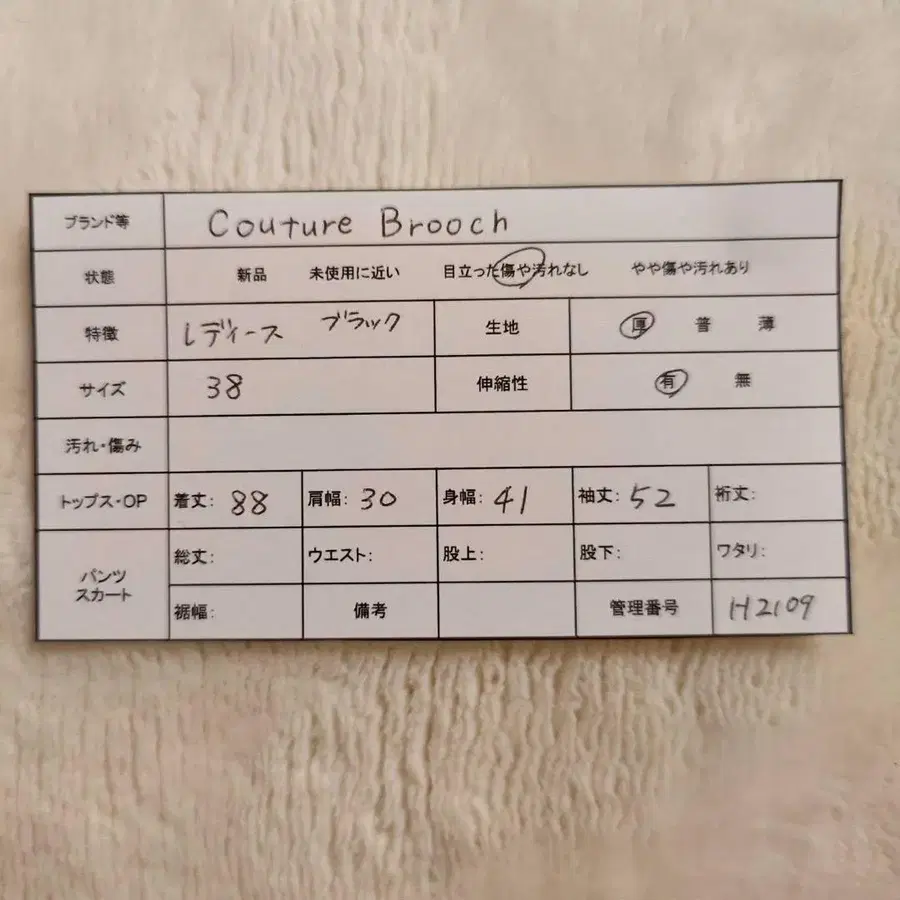 ブランド等 Couture Brooch
状態 新品 未使用に近い 目立った傷や汚れなし やや傷や汚れあり
特徴 レディース ブラック 生地 厚 普 薄
サイズ 38 伸縮性 有 無
汚れ・傷み
トップス・OP 着丈: 88 肩幅: 30 身幅: 41 袖丈: 52 裄丈:
パンツ スカート 総丈: ウエスト: 股上: 股下: ワタリ:
裾幅: 備考 管理番号 H2109